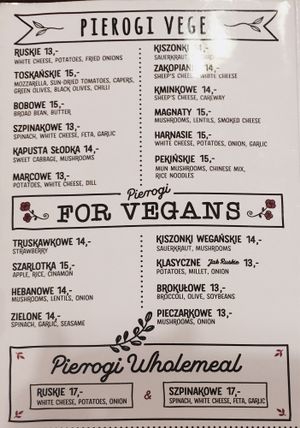 PIEROGI VEGE
RUSKIE 13,-
WHITE CHEESE, POTATOES, FRIED ONIONS
TOSKAŃSKIE 15,-
MOZZARELLA, SUN-DRIED TOMATOES, CAPERS,
GREEN OLIVES, BLACK OLIVES, CHILLI
BOBOWE 15,-
BROAD BEAN, BUTTER,
SZPINAKOWE 13,-
SPINACH, WHITE CHEESE, FETA, GARLIC
KAPUSTA SŁODKA 14,-
SWEET CABBAGE, MUSHROOMS
MARCOWE 13,-
POTATOES, WHITE CHEESE, DILL
KISZONKI
SAUERKRAUT,
ZAKOPIANE 14,-
SHEEP'S CHEESE, WHITE CHEESE
KMINKOWE 14,-
SHEEP'S CHEESE, CAREWAY
MAGNATY 15,-
MUSHROOMS, LENTILS, SMOKED CHEESE
HARNASIE 15,-
WHITE CHEESE, POTATOES, ONION, GARLIC
PEKIŃSKIE 15,-
MUN MUSHROOMS, CHINESE MIX,
RICE NOODLES
Pierogi
FOR VEGANS
TRUSKAWKOWE 14,-
STRAWBERRY
SZARLOTKA 15,-
APPLE, RICE, CINAMON
HEBANOWE 14,-
MUSHROOMS, LENTILS, ONION
ZIELONE 14,-
SPINACH, GARLIC, SEASAME
KISZONKI WEGAŃSKIE 14,-
SAUERKRAUT, MUSHROOMS
KLASYCZNE Jak Ruskie 13,-
POTATOES, MILLET, ONION
BROKUŁOWE 13,-
BROCCOLI, OLIVE, SOYBEANS
PIECZARKOWE 13,-
MUSHROOMS, ONION
Pierogi Wholemeal
RUSKIE 17,-
WHITE CHEESE, POTATOES, ONION
&
SZPINAKOWE 17,-
SPINACH, WHITE CHEESE, FETA, GARLIC